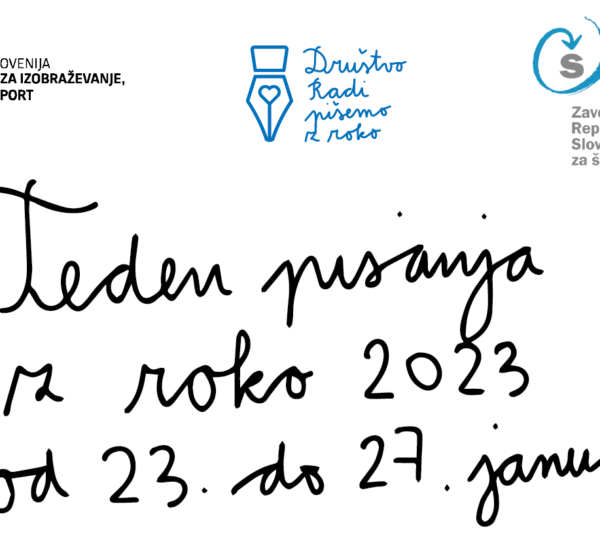 OVENIJA
ZA IZOBRAŽEVANJE,
PORT
Društvo
Radi
pišemo
z roko
Š
Zavo
Repu
Slov
za š
Teden pisanja
z roko 2023
od 23. do 27. janu